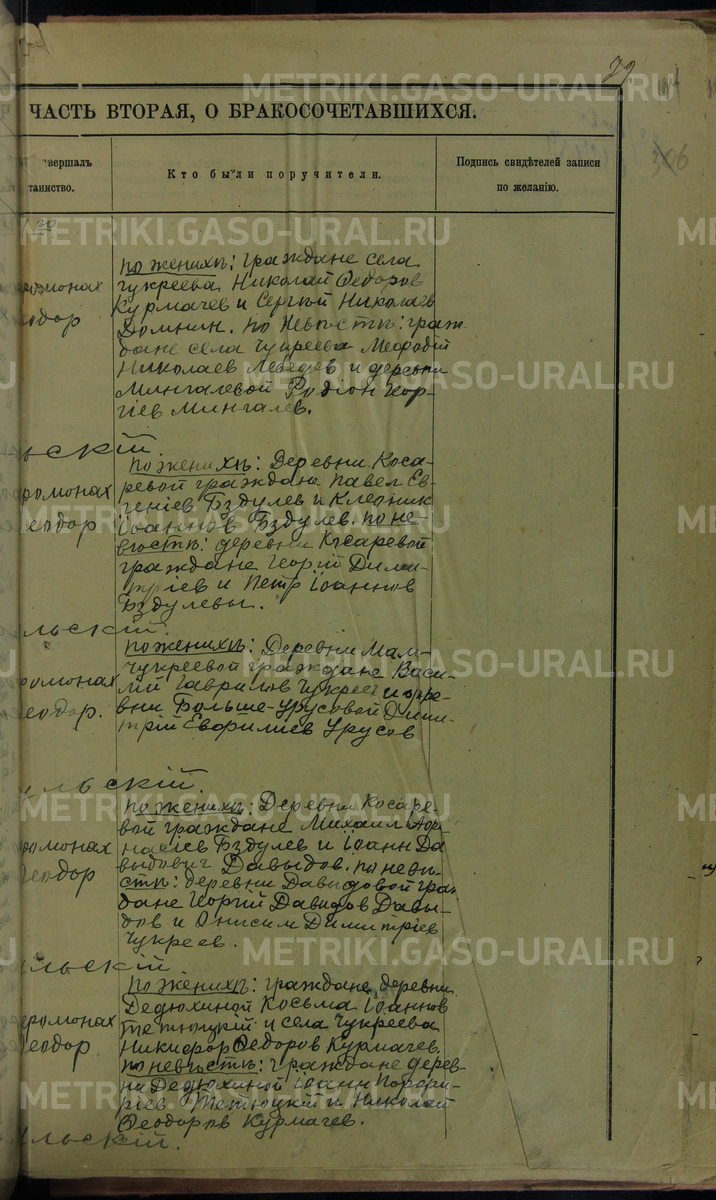 79
306
ЧАСТЬ ВТОРАЯ, О БРАКОСОЧЕТАВШИХСЯ.
овершалъ
таинство.
Кто были поручители.
Подпись свидѣтелей записи
по желанію.
20
по женихѣ: граждане села
Чукреева Николай Феодоров
Курмачев и Сергѣй Николаев
Домнин. по невѣстѣ: граж
дане села Чукреева Мефодій
Николаев Лебедев и деревни
Мингалевой Родіон Геор-
гіев Мингалев.
ромонах
одор
ьскій.
по женихѣ: Деревни Коса-
ревой граждане Павел Ев-
геніев Бздулев и Клеоник
Іоаннов Бздулев. по не-
вѣстѣ: деревни Косаревой
граждане Георгій Дими-
тріев и Петр Іоаннов
Бздулевы.
ромонах
еодор
льскій.
по женихѣ: Деревни Мам-
чукреевой граждане Васи-
лій Гаврилов Чукреев и дере-
вни Больше-Урусовой Дими-
трій Евфилиев Урусов
ромонах
еодор.
льскій.
по женихѣ: Деревни Косаре-
вой граждане Михаил
Бздулев и Іоанн Да
выдович Давыдов. по невѣ-
стѣ: деревни Давыдовой гра
дане Георгій Давидов Давы-
дов и Онисим Димитріев
Чукреев.
ромонах
еодор
льскій.
по женихѣ: граждане деревни
Дедюхиной Косьма Іоаннов
Тетюцкій и села Чукреева
Никифор Феодоров Курмачев
по невѣстѣ: граждане дерев-
ни Дедюхиной Іоанн Порфи-
ріев Тетюцкій и Николай
Феодоров Курмачев.
ромонах
еодор
льскій.
METRIKI.GASO-URAL.RU